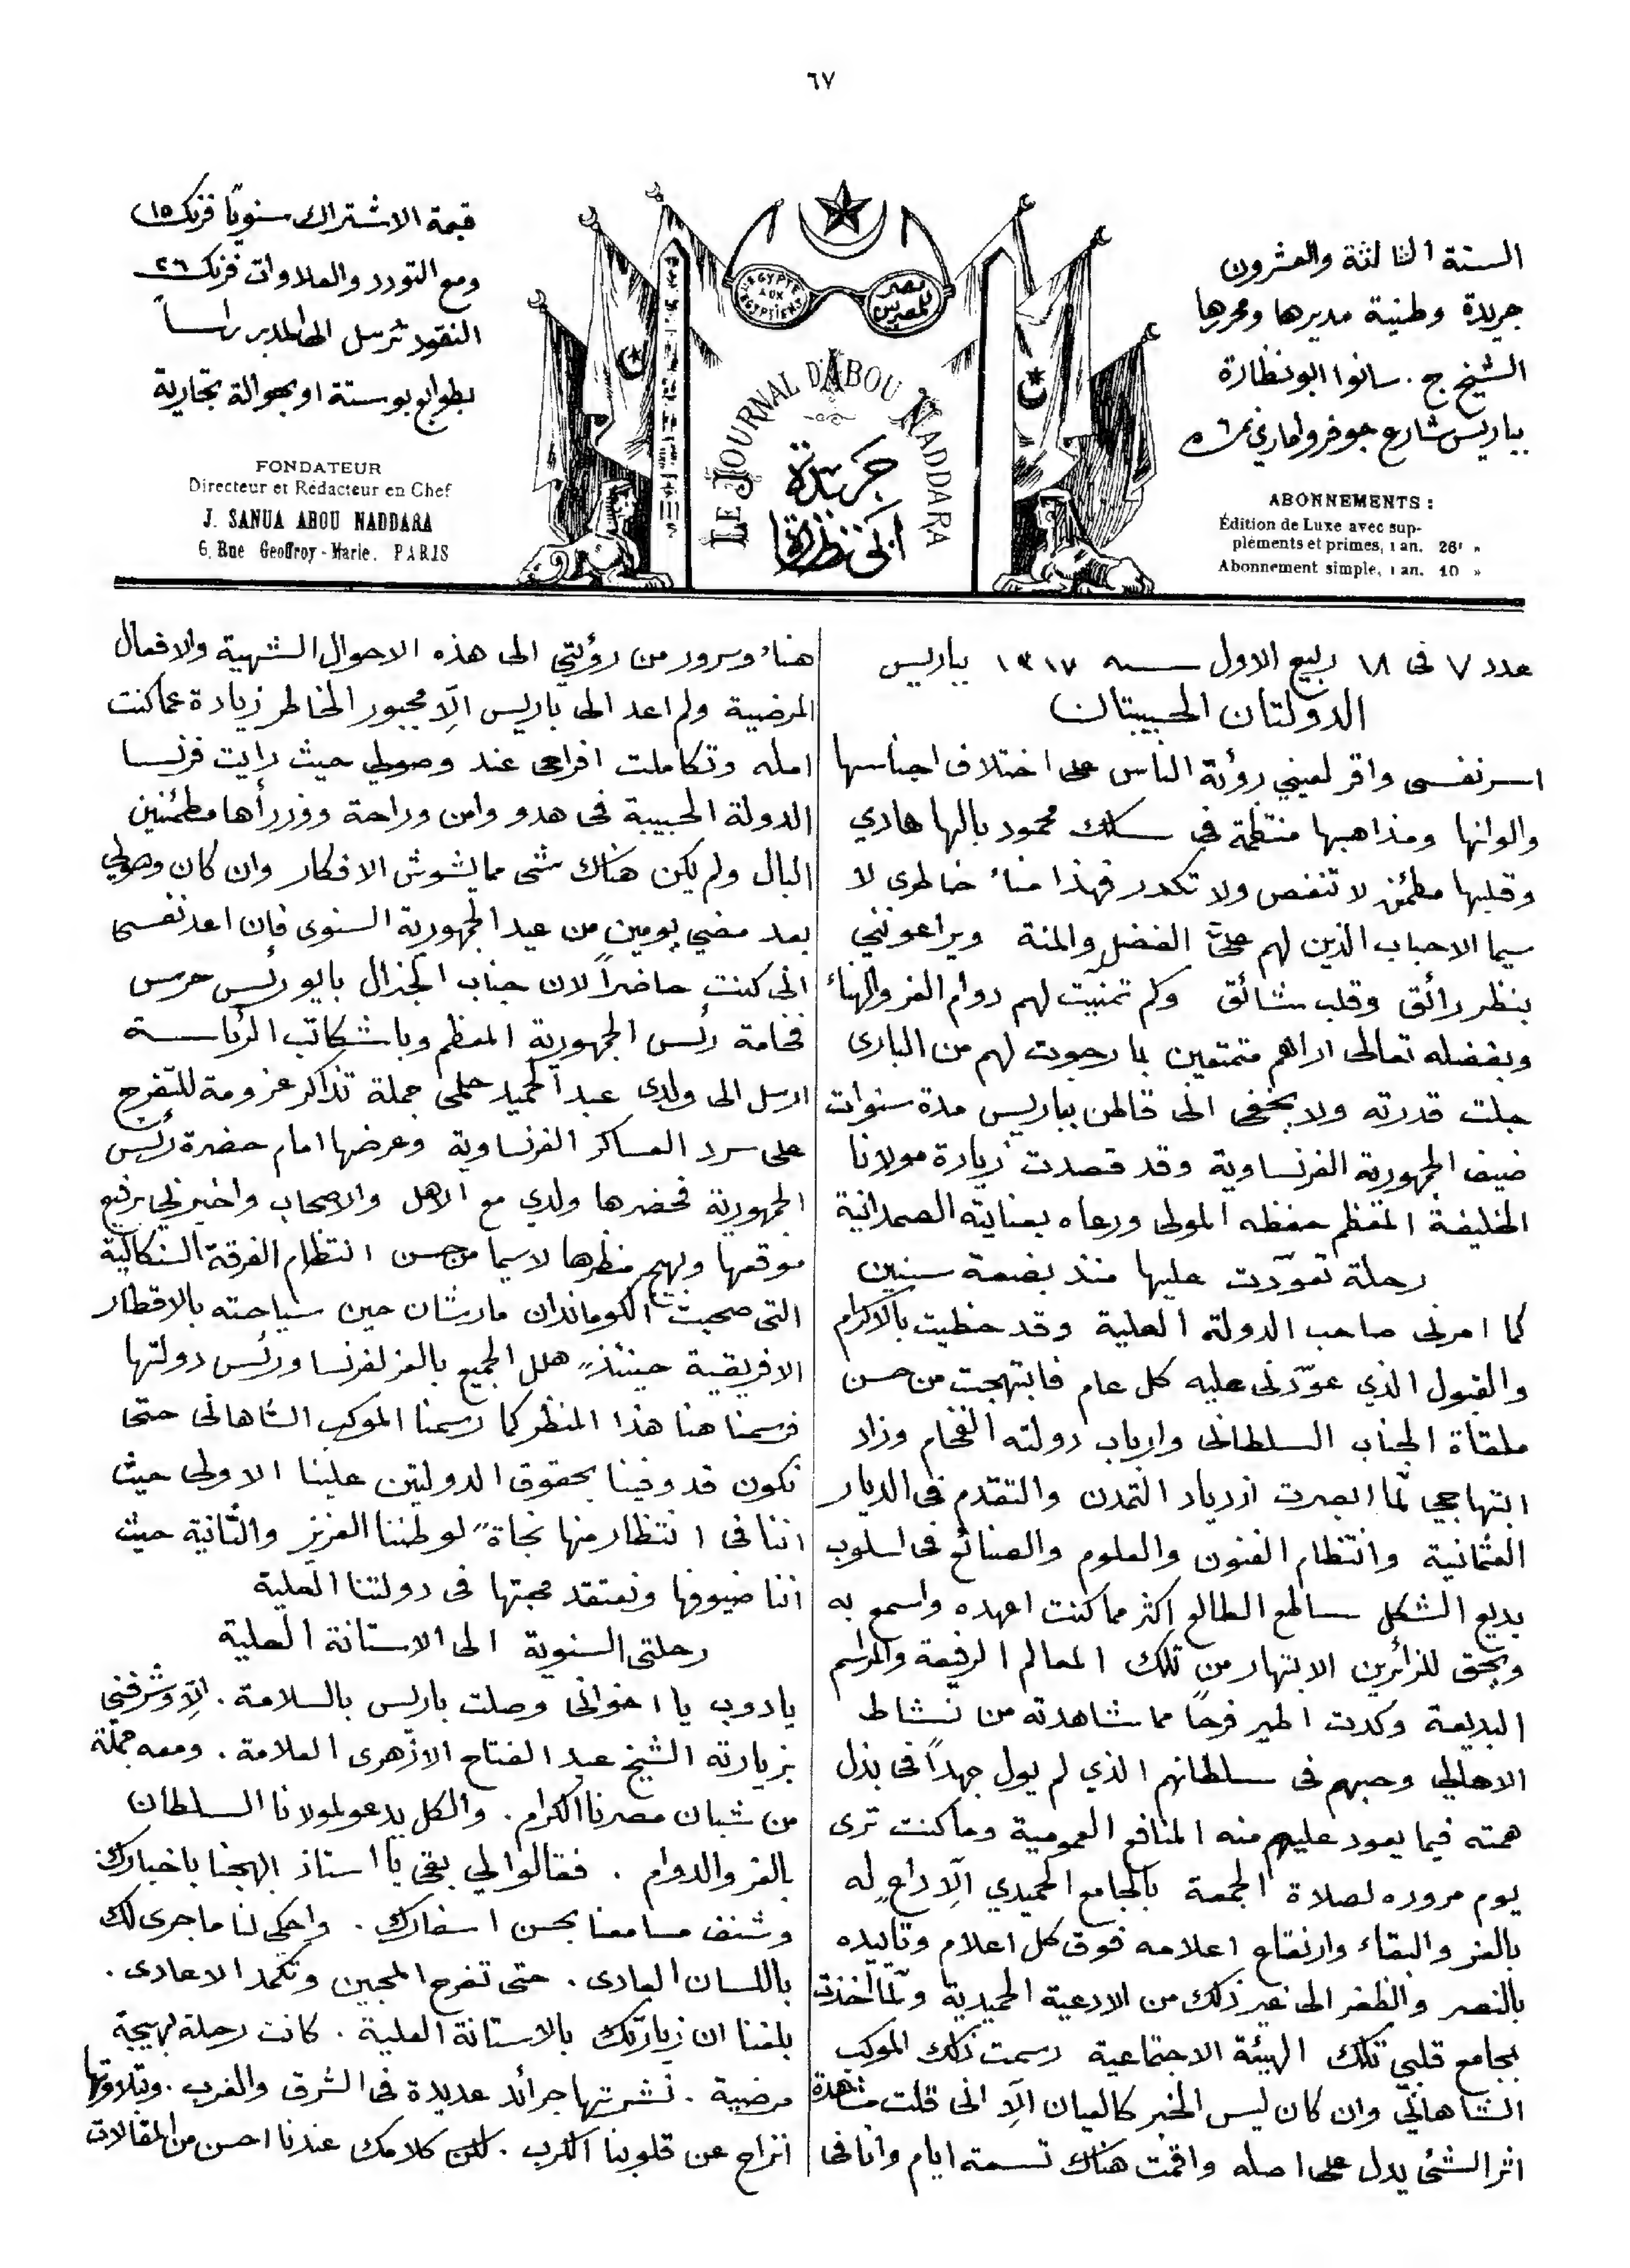 ٦٧
السنة الثالثة والعشرون
جريدة وطنية مديرها ومحررها
الشيخ ج. سانوا ابو نظارة
بباريس شارع جوفروا ماري نمرة ٦
ABONNEMENTS :
Édition de Luxe avec sup-
pléments et primes, 1 an. 26f »
Abonnement simple, 1 an. 10 »
L'EGYPTE AUX EGYPTIENS
مصر للمصريين
LE JOURNAL D'ABOU NADDARA
جريدة
ابي نظارة
قيمة الاشتراك سنويّا فرنك ١٥
ومع التورد والعلاوات فرنك ٢٦
النقود ترسل الى المدير راساً
بطوابع بوستة او بحوالة تجارية
FONDATEUR
Directeur et Rédacteur en Chef
J. SANUA ABOU NADDARA
6, Rue Geoffroy-Marie. PARIS
عدد ٧ فى ١٨ ربيع الاول سنه ١٣١٧ بباريس
الدولتان الحبيبتان
اسر نفسى واقر لعيني رؤية الناس على اختلاف اجناسها
والوانها ومذاهبها منتظمة في سلك محمود بالها هادي
وقلبها مطمئن لا تنغص ولا تكدر فهذا مناء خاطرى لا
سيما الاحباب الذين لهم علىّ الفضل والمنة ويراعونني
بنظر رائق وقلب شائق وكم تمنيت لهم دوام العز والهناء
وبفضله تعالى اراهم متمتعين بما رجوت لهم من البارى
جلت قدرته ولا يخفى انى قاطن بباريس مدة سنوات
ضيف الجمهورية الفرنساوية وقد قصدت زيارة مولانا
الخليفة المعظم حفظه المولى ورعاه بعنايته الصمدانية
رحلة تعوّدت عليها منذ بضعة سنين
كما امرنى صاحب الدولة العلية وقد حظيت بالاكرام
والقبول الذي عوّدنى عليه كل عام فابتهجت من حسن
ملقاة الجناب السلطانى وارباب دولته الفخام وزاد
ابتهاجي لمّا ابصرت ازدياد التمدن والتقدم فى الديار
العثمانية وانتظام الفنون والعلوم والصنائع فى اسلوب
بديع الشكل ساطع الطالع اكثر مما كنت اعهده واسمع به
ويحق للزائرين الانبهار من تلك المعالم الرفيعة والمراسم
البديعة وكدت اطير فرحاً مما شاهدته من نشاط
الاهالي وحبهم فى سلطانهم الذي لم يول جهداً فى بذل
همته فيما يعود عليهم منه المنافع العمومية وما كنت ترى
يوم مروره لصلاة الجمعة بالجامع الحميدي الّا داعٍ له
بالعز والبقاء وارتفاع اعلامه فوق كل اعلام وتاييده
بالنصر والظفر الى غير ذلك من الادعية الحميدية ولمّا اخذت
بجامع قلبي تلك الهيئة الاجتماعية رسمت ذلك الموكب
الشاهاني وان كان ليس الخبر كالعيان الّا انى قلت مشاهدة
اثر الشئ يدل على اصله واقمت هناك تسعة ايام وانا فى
هناء وسرور من رؤيتي الى هذه الاحوال الشهية والافعال
المرضية ولم اعد الى باريس الّا مجبور الخاطر زيادة عما كنت
امله وتكاملت افراحى عند وصولي حيث رايت فرنسا
الدولة الحبيبة فى هدو وامن وراحة ووزرأها مطمئنين
البال ولم يكن هناك شى مما يشوش الافكار وان كان وصولي
بعد مضي يومين من عيد الجمهورية السنوى فإن اعد نفسى
انى كنت حاضراً لان جناب الجنرال بايو رئيس حرس
فخامة رئس الجمهورية المعظم وباشكاتب الرئاسة
ارسل الى ولدى عبد الحميد حلمى جملة تذاكر عزومة للتفرج
على سرد العساكر الفرنساوية وعرضها امام حضرة رئس
الجمهورية فحضرها ولدي مع الاهل والاصحاب واخبرني برفيع
موقعها وبهج منظرها لاسيما من حسن انتظام الفرقة السنكالية
التى صحبت الكوماندان مارشان حين سياحته بالاقطار
الافريقية حينئذٍ هلل الجميع بالعز لفرنسا ورئس دولتها
فرسمنا هنا هذا المنظر كما رسمنا الموكب الشاهانى حتى
نكون قد وفينا بحقوق الدولتين علينا الاولى حيث
اننا فى انتظار منها نجاةً لوطننا العزيز والثانية حيث
اننا ضيوفها ونعتقد محبتها فى دولتنا العلية
رحلتى السنوية الى الاستانة العلية
يادوب يا اخوانى وصلت باريس بالسلامة . الّا وشرفنى
بزيارته الشيخ عبد الفتاح الازهرى العلامة . ومعه جملة
من شبان مصرنا الكرام . والكل يدعو لمولانا السلطان
بالعز والدوام . فقالوا لي بقى يا استاذ ابهجنا باخبارك
وشنف مسامعنا بحسن اسفارك . واحكى لنا ما جرى لك
باللسان العادى . حتى تفرح المحبين وتكمد الاعادى .
بلغنا ان زيارتك بالاستانة العلية . كانت رحلة بهيجة
مرضية . نشرتها جرائد عديدة فى الشرق والغرب . وبتلاوتها
انزاح عن قلوبنا الكرب . لكن كلامك عندنا احسن من المقالات